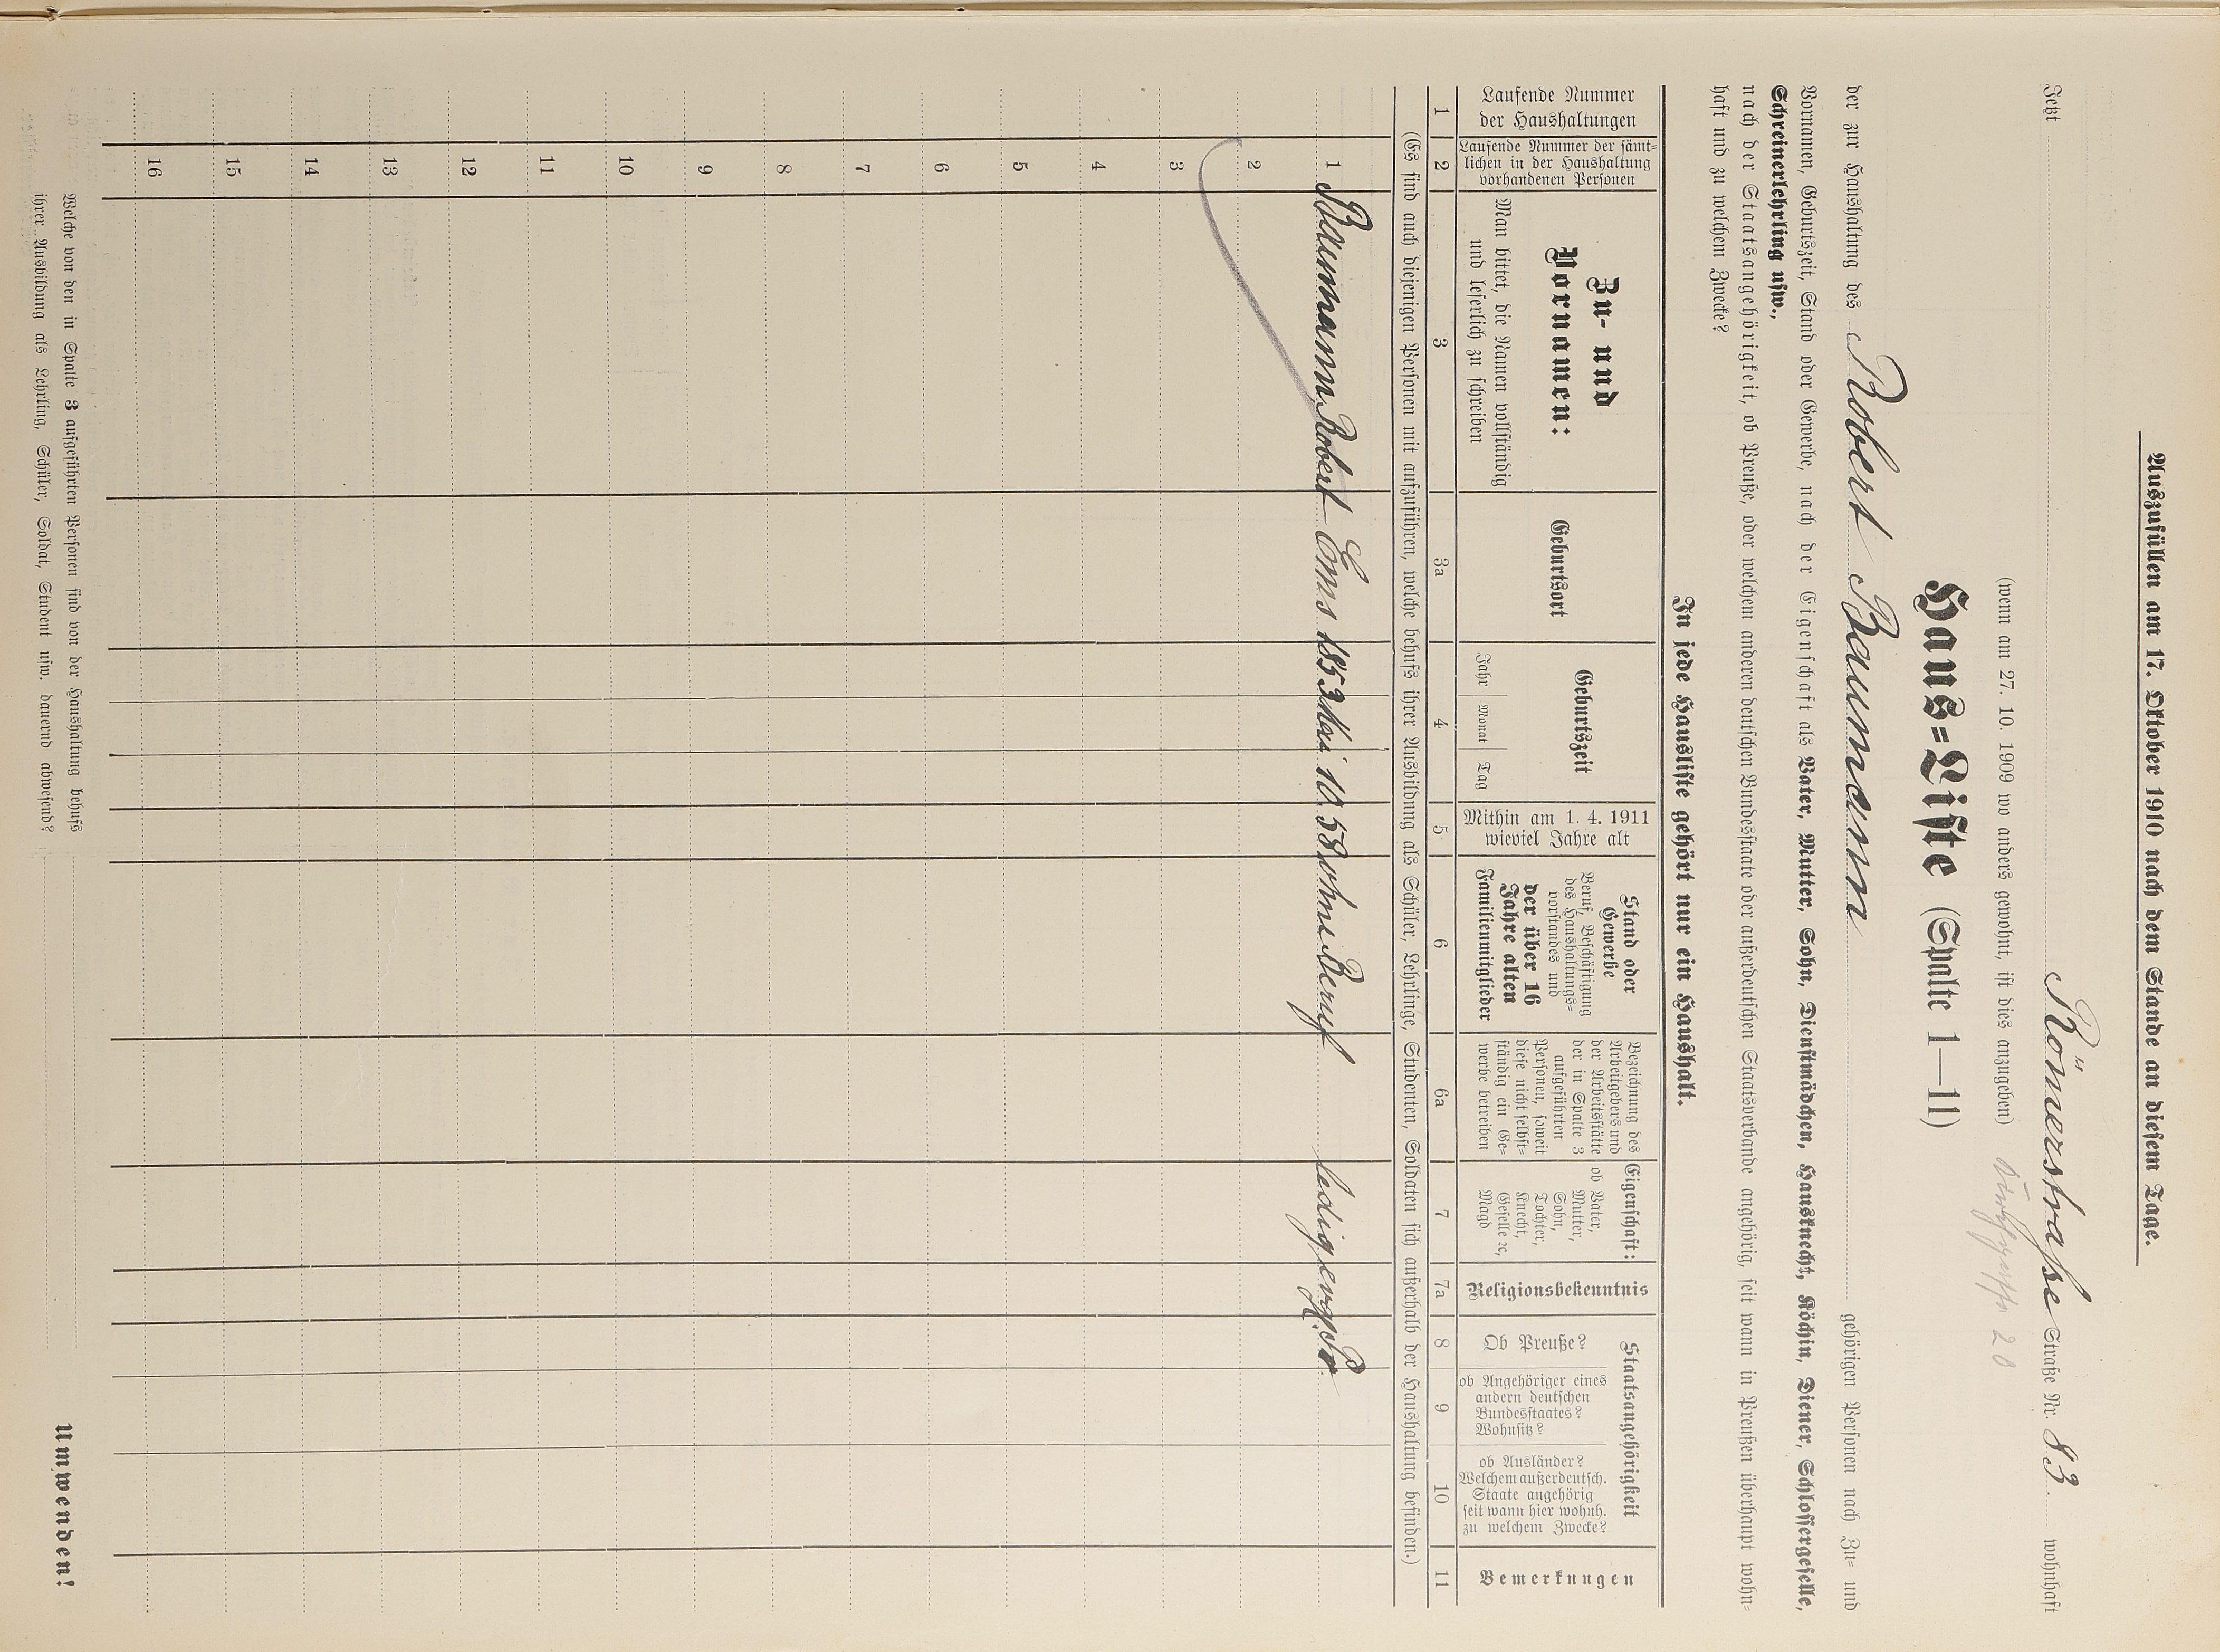 Auszufüllen am 17. Oktober 1910 nach dem Stande an diesem Tage.
Jetzt Römerstraße Straße Nr. 83. wohnhaft
(wenn am 27. 10. 1909 wo anders gewohnt, ist dies anzugeben) 20
Haus=Liste (Spalte 1—11)
der zur Haushaltung des Robert Baumann gehörigen Personen nach Zu= und
Vornamen, Geburtszeit, Stand oder Gewerbe, nach der Eigenschaft als Vater, Mutter, Sohn, Dienstmädchen, Hausknecht, Köchin, Diener, Schlossergeselle,
Schreinerlehrling usw.,
nach der Staatsangehörigkeit, ob Preuße, oder welchem anderen deutschen Bundesstaate oder außerdeutschen Staatsverbande angehörig, seit wann in Preußen überhaupt wohn=
haft und zu welchem Zwecke?
In jede Hausliste gehört nur ein Haushalt.
Laufende Nummer
der Haushaltungen
Laufende Nummer der sämt=
lichen in der Haushaltung
vorhandenen Personen
Zu- und
Vornamen:
Man bittet, die Namen vollständig
und leserlich zu schreiben
Geburtsort
Geburtszeit
Jahr Monat Tag
Mithin am 1. 4. 1911
wieviel Jahre alt
Stand oder
Gewerbe
Beruf, Beschäftigung
des Haushaltungs=
vorstandes und
der über 16
Jahre alten
Familienmitglieder
Bezeichnung des
Arbeitgebers und
der Arbeitsstätte
der in Spalte 3
aufgeführten
Personen, soweit
diese nicht selbst=
ständig ein Ge=
werbe betreiben
Eigenschaft:
ob Vater,
Mutter,
Sohn,
Tochter,
Knecht,
Geselle ꝛc,
Magd
Religionsbekenntnis
Staatsangehörigkeit
Ob Preuße?
ob Angehöriger eines
andern deutschen
Bundesstaates?
Wohnsitz?
ob Ausländer?
Welchem außerdeutsch.
Staate angehörig
seit wann hier wohnh.
zu welchem Zwecke?
Bemerkungen
1 2 3 3a 4 5 6 6a 7 7a 8 9 10 11
(Es sind auch diejenigen Personen mit aufzuführen, welche behufs ihrer Ausbildung als Schüler, Lehrlinge, Studenten, Soldaten sich außerhalb der Haushaltung befinden.)
1 Baumann, Robert Ems 1853 Mai 10. 58 ohne Beruf ledig evgl. Pr.
2
3
4
5
6
7
8
9
10
11
12
13
14
15
16
Welche von den in Spalte 3 aufgeführten Personen sind von der Haushaltung behufs
ihrer Ausbildung als Lehrling, Schüler, Soldat, Student usw. dauernd abwesend?
Umwenden!